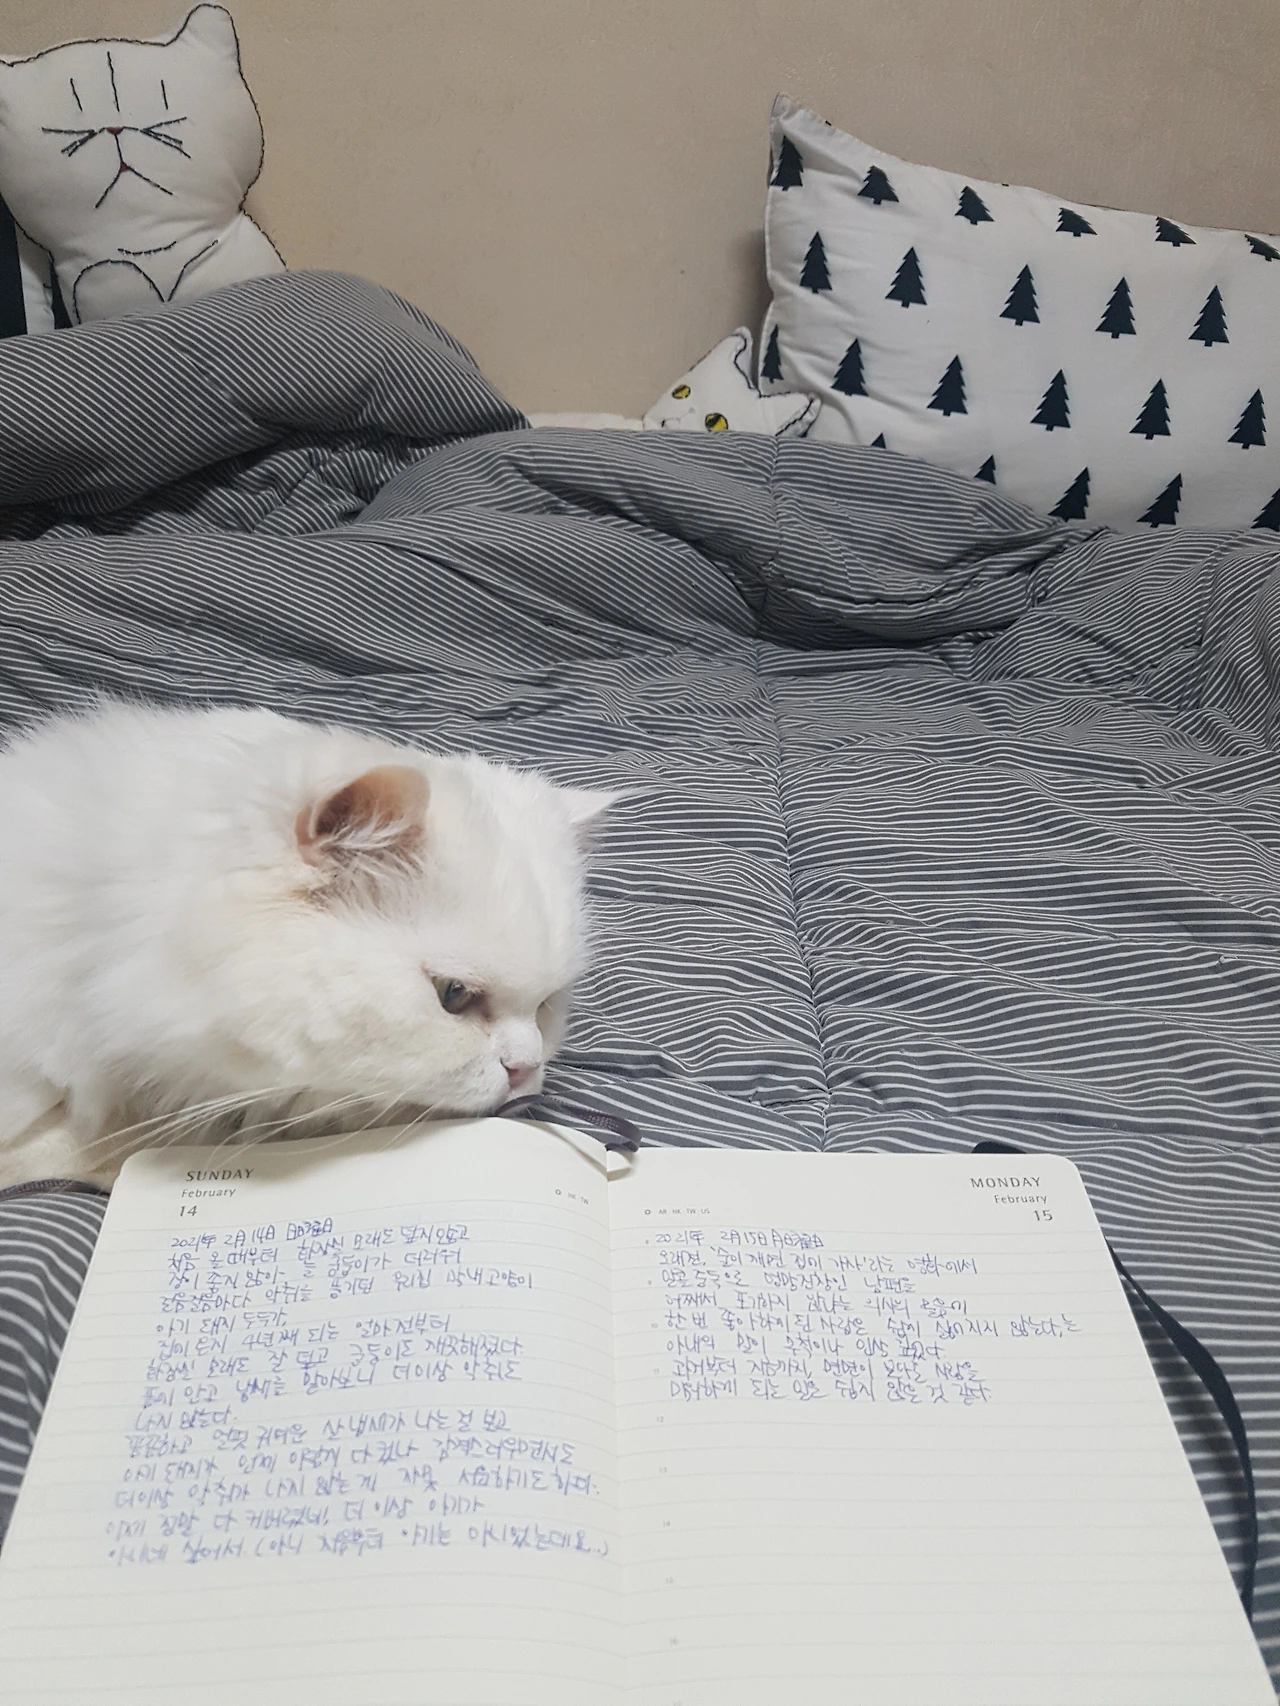 SUNDAY
February
14
HK · TW
2021年 2月 14日 日曜日
처음 올 때부터 화장실 모래도 덮지 않고
장이 좋지 않아 늘 궁둥이가 더러워
걸음걸음마다 악취를 풍기던 우리집 막내고양이
아기 돼지 두두가,
집에 온지 4년째 되는 얼마 전부터
화장실 모래도 잘 덮고 궁둥이도 깨끗해졌다
품에 안고 냄새를 맡아보니 더이상 악취도
나지 않는다.
꼼꼼하고 얼핏 귀여운 산 냄새가 나는 걸 보고
아기 돼지가 언제 이렇게 다 컸나 감격스러우면서도
더이상 악취가 나지 않는 게 자못 서운하기도 하다.
이제 정말 다 커버렸네, 더 이상 아기가
아니네 싶어서. (아니 처음부터 아기는 아니었는데요..)
MONDAY
February
15
AR · HK · TW · US
2021年 2月 15日 月曜日
오래전, '술이 깨면 집에 가자'라는 영화에서
알콜중독으로 엉망진창인 남편을
어째서 포기하지 않냐는 의사의 물음에
한 번 좋아하게 된 사람은 쉽게 싫어지지 않는다,는
아내의 말이 무척이나 인상 깊었다
과거부터 지금까지, 면면이 보아온 사람을
미워하게 되는 일은 쉽지 않은 것 같다
12
13
14
15
16